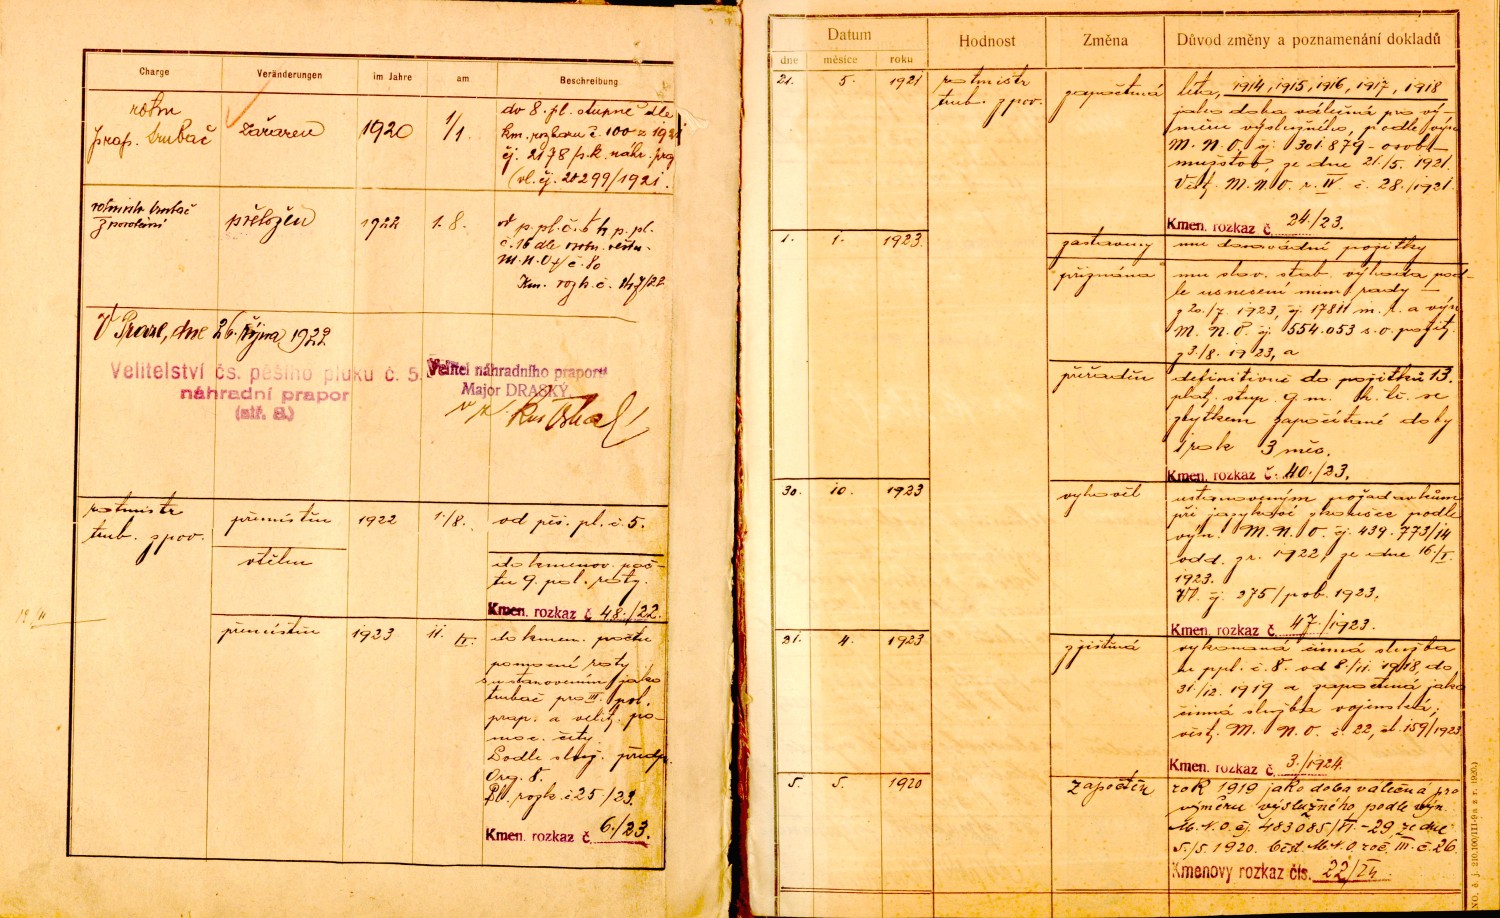 Charge Veränderungen im Jahre am Beschreibung
rotm
prap. trubač zařazen 1920 1/1
do 8. pl. stupně dle
km. rozkazu č. 100 z 1921
čj. 2178/p.k. náhr. prap
(vl. čj. 28299/1921.
rotmistr trubač
z povolání přeložen 1922 1. 8.
od p. pl. č. 5 k p. pl.
č. 16 dle osobn. věstn.
M.N.O. č. 80
Km. rozk. č. 147/22
V Praze, dne 26. října 1922
Velitelství čs. pěšího pluku č. 5.
náhradní prapor
Velitel náhradního praporu
Major DRASKÝ.
v z.
rotmistr
trub. z pov. přemístěn 1922 1./8. od pěš. pl. č. 5.
vtělen do kmenov. poč-
tu 9. pol. roty.
Kmen. rozkaz č 48./22.
přemístěn 1923 11. IV. do kmen. počtu
pomocné roty
s ustanovením jako
trubač pro III. pol.
prap. a velit. po-
moc. čety.
Podle služ. předp.
Org. 8.
Pl. rozk. č 25/23.
Kmen. rozkaz č. 6./23.
19/II
Datum Hodnost Změna Důvod změny a poznamenání dokladů
dne měsíce roku
21. 5. 1921 rotmistr
trub. z pov. započtená léta, 1914, 1915, 1916, 1917, 1918
jako doba válečná pro vý-
měru výslužného, podle výn.
M. N. O. čj. 301.879 - osob.
mužstva ze dne 21./5. 1921
Věst. M. N. O. r. IV. č. 28./1921
Kmen. rozkaz č. 24./23.
1. 1. 1923. zastaveny mu dosavadní požitky
přiznána mu slov. stab. výhoda pod-
le usnesení min. rady
z 20./7. 1923, čj. 17811 m. r. a výn.
M. N. O. čj. 554.053 s. o. požit.
z 3./8. 1923, a
přeřaděn definitivně do požitků 13.
plat. stup. 9 m. h. tř. se
zbytkem započítané doby
1 rok 3 měs.
Kmen. rozkaz č. 40./23.
30. 10. 1923 vyhověl ustanoveným požadavkům
při jazykové zkoušce podle
výn. M. N. O. čj. 439.773/14
odd. gr. 1922, ze dne 16./I.
1923.
VV. čj. 275/pob. 1923.
Kmen. rozkaz č. 47./1923.
21. 4. 1923 zjištěná vykonaná činná služba
u ppl. č. 8. od 8./11. 1918 do
31./12. 1919 a započtená jako
činná služba vojenská;
věst. M. N. O. č. 22, čl. 159/1923
Kmen. rozkaz č. 3./1924.
5. 5. 1920 započten rok 1919 jako doba válečná pro
výměru výslužného podle výn.
M.N.O. čj. 483085/VI.-29 ze dne
5./5. 1920. Věst. M.N.O. roč. III. č. 26
Kmenový rozkaz čís. 22/24.
NO. č. j. 210.100/III-9 a z r. 1920.)